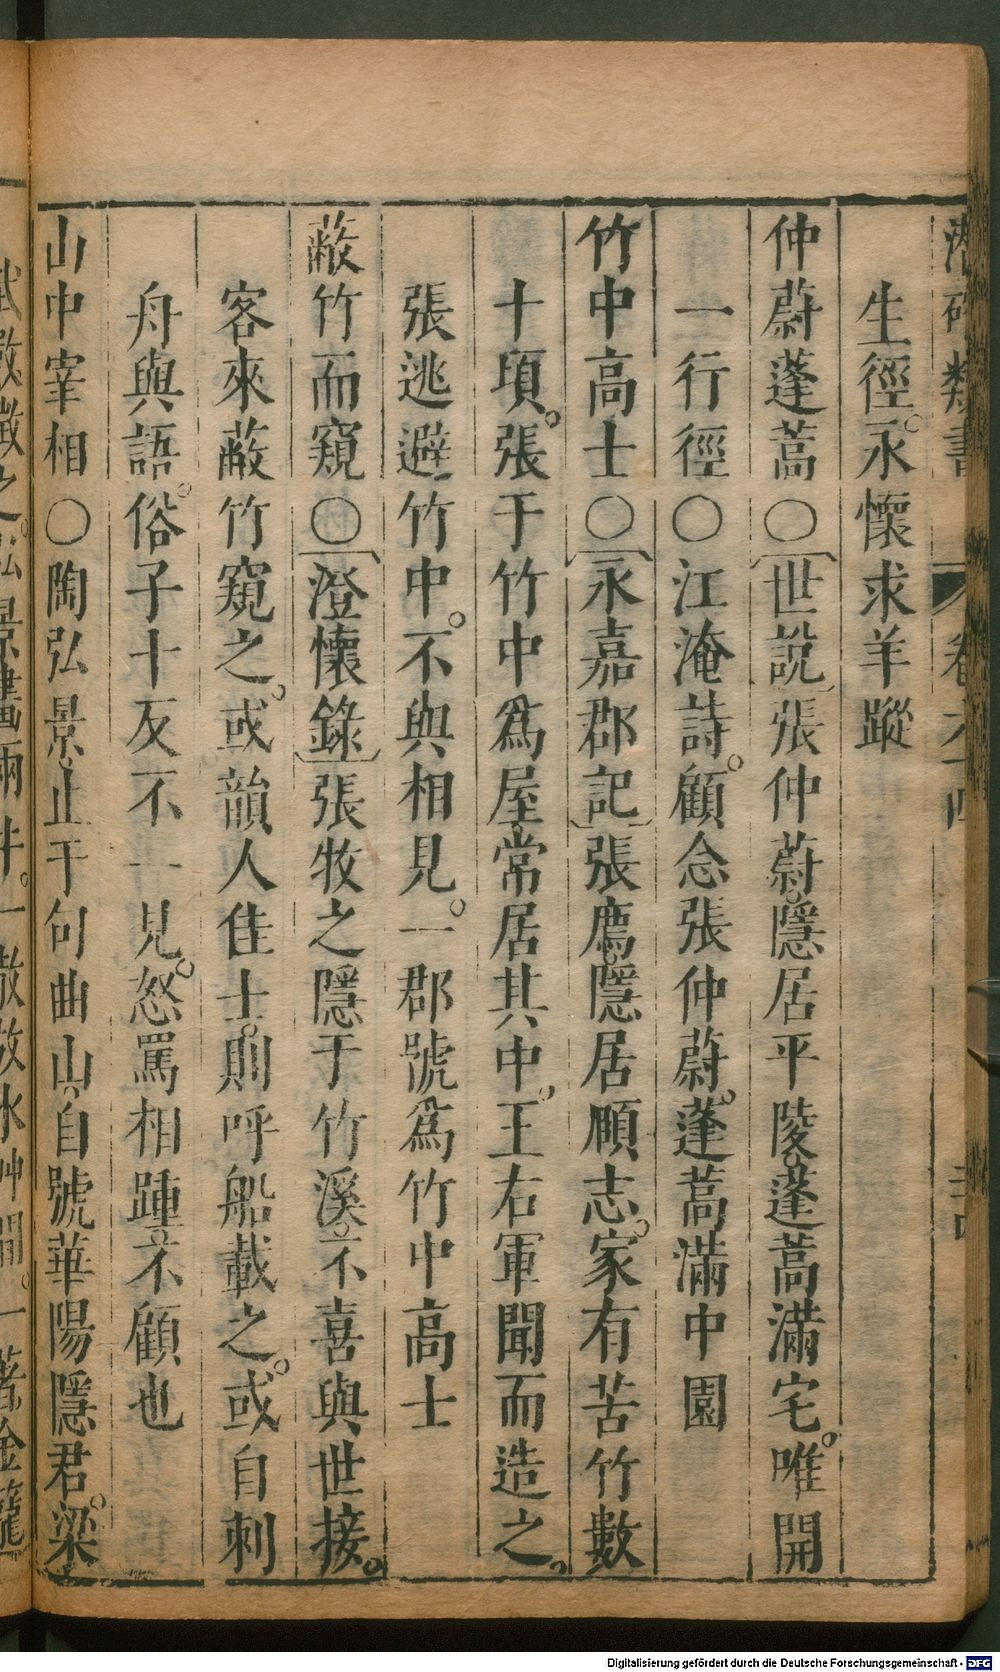 潛確類書 卷六十四
生徑。永懷求羊蹤
仲蔚蓬蒿○〔世說〕張仲蔚。隱居平陵。蓬蒿滿宅。唯開
一行徑○江淹詩。顧念張仲蔚。蓬蒿滿中園
竹中高士○〔永嘉郡記〕張廌。隱居頤志。家有苦竹數
十頃。張于竹中爲屋。常居其中。王右軍聞而造之。
張逃避竹中。不與相見。一郡號爲竹中高士
蔽竹而窺○〔澄懷錄〕張牧之隱于竹溪。不喜與世接。
客來蔽竹窺之。或韻人佳士。則呼船載之。或自刺
舟與語。俗子十反不一見。怒罵相踵。不顧也
山中宰相○陶弘景。止于句曲山。自號華陽隱君。梁
武敬徵之。弘景畫兩牛。一散放水艸間。一著金籠
Digitalisierung gefördert durch die Deutsche Forschungsgemeinschaft - DFG